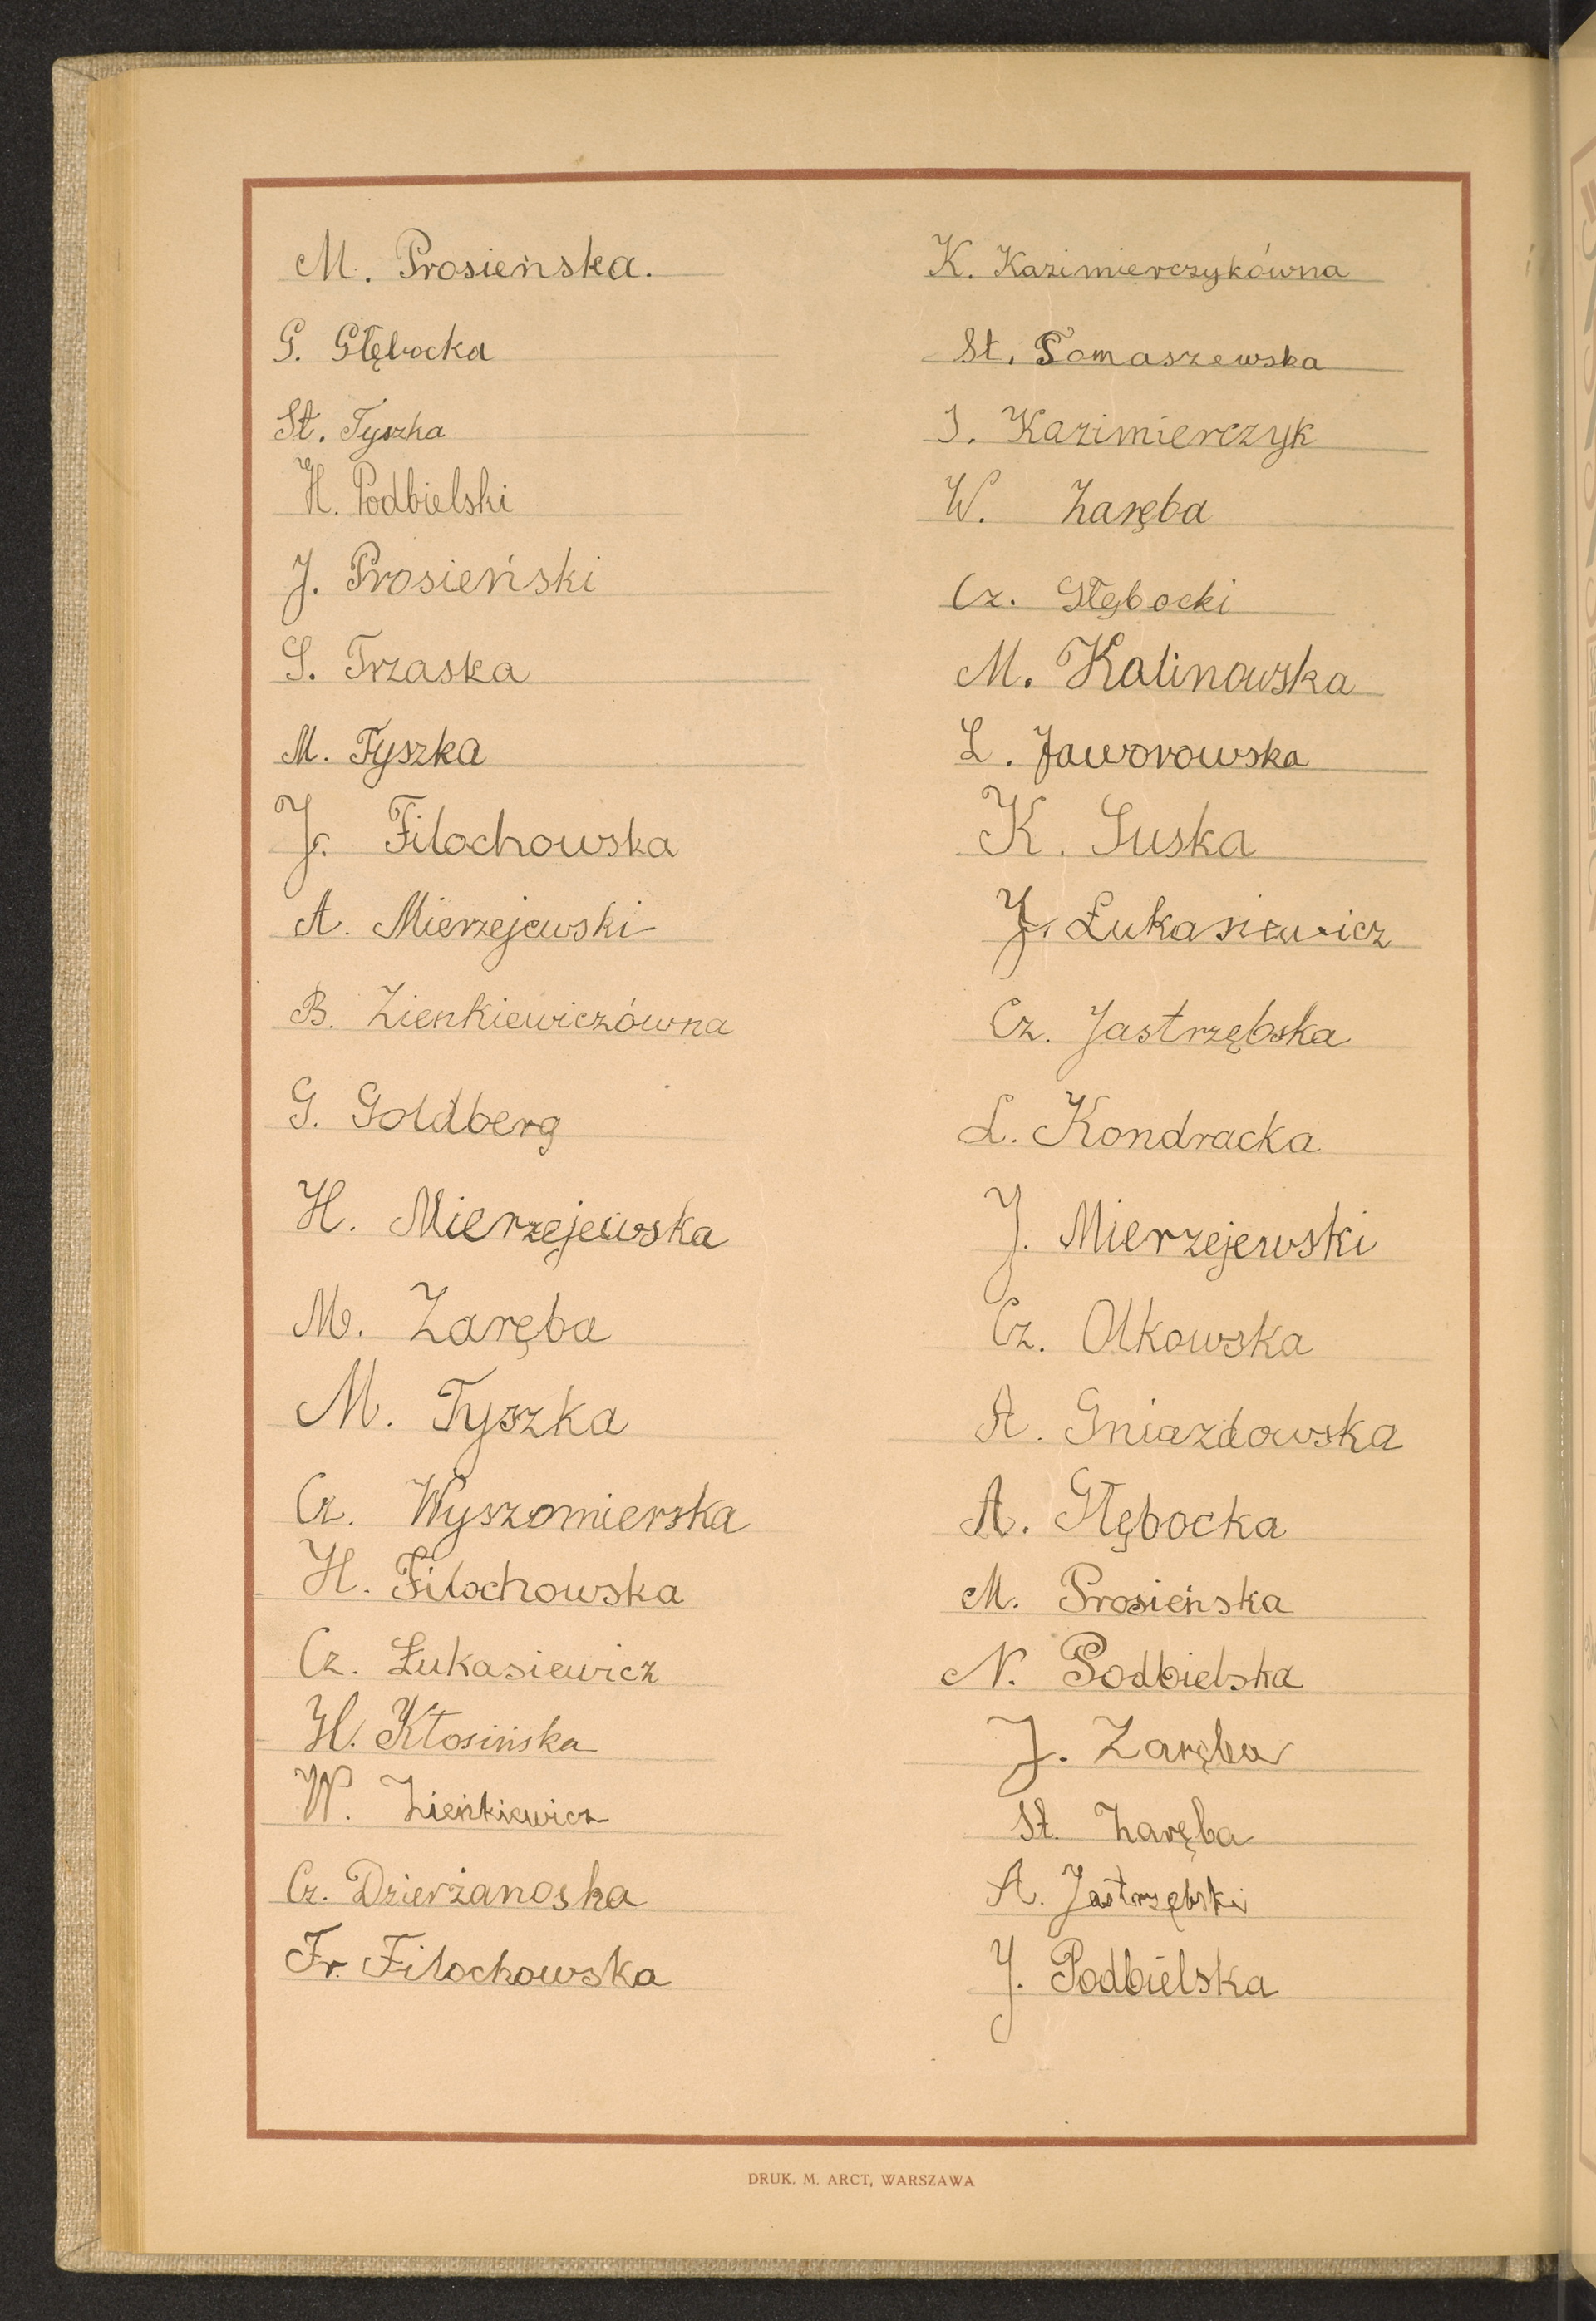 M. Prosieńska.
G. Głębocka
St. Tyszka
H. Podbielski
J. Prosieński
S. Trzaska
M. Tyszka
J. Filochowska
A. Mierzejewski
B. Zienkiewiczówna
G. Goldberg
H. Mierzejewska
M. Zaręba
M. Tyszka
Cz. Wyszomierska
H. Filochowska
Cz. Łukasiewicz
H. Kłosińska
W. Zienkiewicz
Cz. Dzierżanoska
Fr. Filochowska
K. Kazimierczykówna
St. Tomaszewska
J. Kazimierczyk
W. Zaręba
Cz. Głębocki
M. Kalinowska
L. Jaworowska
K. Suska
J. Łukasiewicz
Cz. Jastrzębska
L. Kondracka
J. Mierzejewski
Cz. Olkowska
A. Gniazdowska
A. Głębocka
M. Prosieńska
N. Podbielska
J. Zaręba
St. Zaręba
A. Jastrzębski
J. Podbielska
DRUK. M. ARCT, WARSZAWA